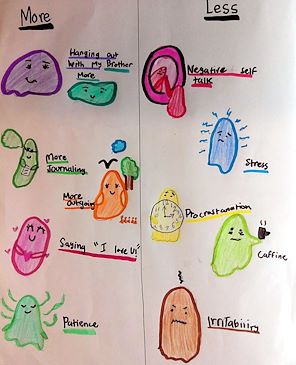 More
Hanging out
with my Brother
More
More
Journaling
More
outgoing
Saying "I love U!"
Patience
Less
Negative self
talk
Stress
Procrastanation
Caffine
Irritability